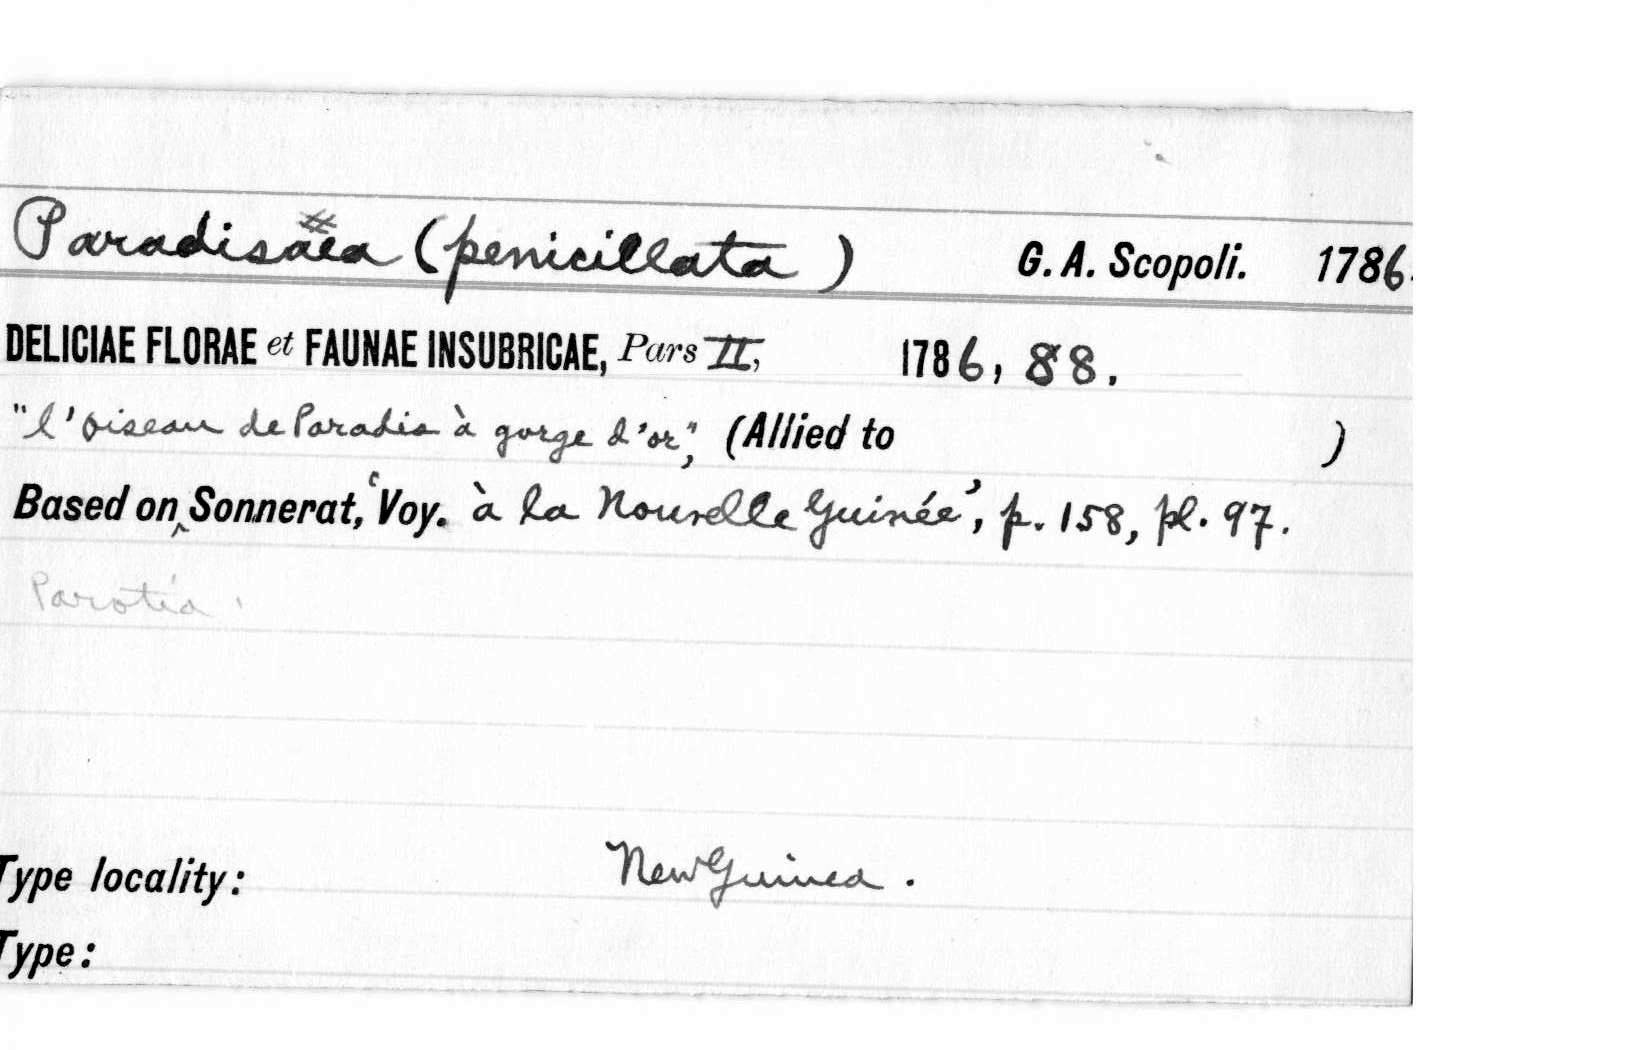 Paradisaea (penicillata) G. A. Scopoli. 1786.
DELICIAE FLORAE et FAUNAE INSUBRICAE, Pars II, 1786, 88.
"l'oiseau de Paradis à gorge d'or", (Allied to )
Based on Sonnerat, 'Voy. à la Nouvelle Guinée', p. 158, pl. 97.
Parotia.
Type locality: New Guinea.
Type: